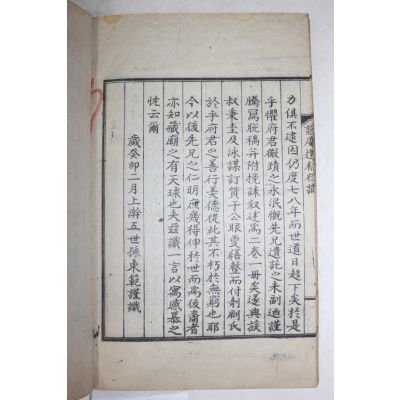 力俱不逮因仍度七八年而世道日趍下矣於是
乎懼府君徽蹟之永泯慨先兄遺託之未副迺謹
謄寫脫稿并附挽誄叙述寫二卷一冊矣遂與族
叔秉圭及泳謀訂質于公眼更禧整而付剞劂氏
於乎府君之善行美德從此其不朽於無窮也耶
今以後先兄之仁明庶幾得伸於世而爲後裔者
亦知藏廟之有天球也夫玆識一言以寓感慕之
忱云爾
歲癸卯二月上澣五世孫東範謹識